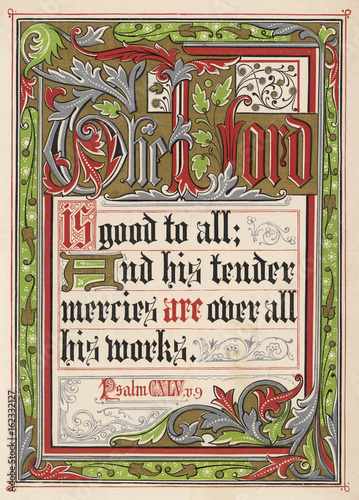 The Lord
is good to all;
And his tender
mercies are over all
his works.
Psalm CXLV. v. 9
162332127